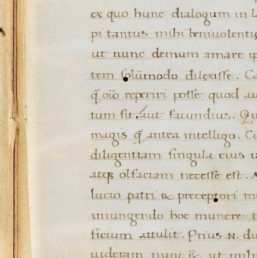 ex quo hunc dialogum in la
pi tantus mihi benivolenti
ut nunc demum amare ip
tem solūmodo dilexisse. C
q̄ oīo reperiri posse quod au
tum sit, aut facundius. Qu
magis q̄ antea intelligo. C
diligentiam singula eius u
atq; olfaciam necesse est. A
lucio patri & preceptori m
iniungendo hoc munere t
ficium attulit. Prius .N. d
videtam nunc & ut mihi